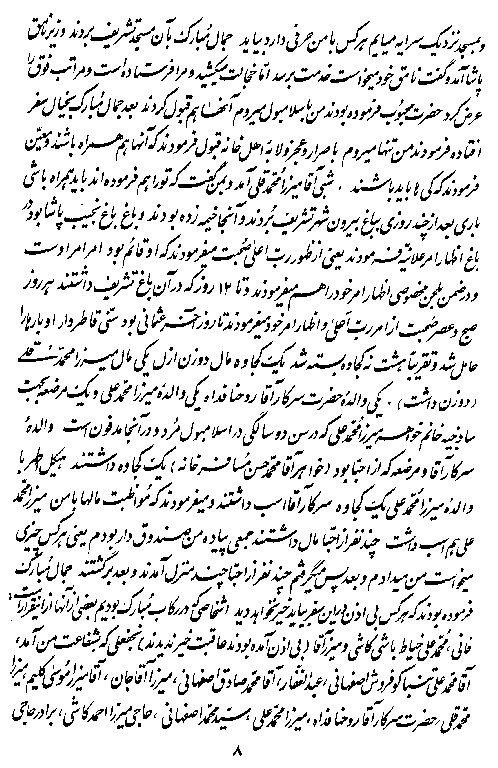 و بمسجد نزدیک سرایه میایم هرکس با من حرفی دارد بیاید جمال مبارک بآن مسجد تشریف بردند وزیر نامق
پاشا آمده و گفت نامق خود میخواست خدمت برسد امّا خجالت میکشید و مرا فرستاده است و مراتب فوق را
عرض کرد حضرت محبوب فرموده بودند من باسلامبول میروم آنها هم قبول کردند بعد جمال مبارک بخیال سفر
افتاده فرمودند من تنها میروم باصرار و عجز و لابه اهل خانه قبول فرمودند که آنها هم همراه باشند و معین
فرمودند که کی ها باید باشند . شبی آقا میرزا محمّد قلی آمد و بمن گفت که تو را هم فرموده اند باید همراه باشی
باری بعد از چند روزی بباغ بیرون شهر تشریف بردند و آنجا خیمه زده بودند و باغ باغ نجیب پاشا بود در
باغ اظهار امر علانیه فرمودند یعنی از ظهور رب اعلی صحبت میفرمودند که او قائم بود امر امر اوست
و در ضمن بلحن مخصوصی اظهار امر خود را هم میفرمودند و تا ۱۲ روز که در آن باغ تشریف داشتند هر روز
صبح و عصر صحبت از امر ربّ اعلی و اظهار امر خود میفرمودند تا روز آخر عثمانی بود سنّی قاطردار او بارها را
حامل شد و تقریباً هشت نه کجاوه بسته شد یک کجاوه مال دو زن ازل یکی مال میرزا محمّد
(دو زن داشت) . یکی والدۀ حضرت سرکار آقا روحنا فداه یکی والدۀ میرزا محمّد علی و یک مرضعه بجهت
ساذجیه خانم خواهر میرزا محمّد علی که در سن دو سالگی در اسلامبول مرد و در آنجا مدفون است والدۀ
سرکار آقا و مرضعه که از احبّا بود (خواهر آقا محمّد حسن مسافرخانه) یک کجاوه داشتند هیکل اطهر با
والدۀ میرزا محمّد علی یک کجاوه سرکار آقا اسب داشتند و میفرمودند که مواظبت مالها با من میرزا محمّد
علی هم اسب داشت چند نفر از احبّا مال داشتند جمعی پیاده من صندوق دار بودم یعنی هرکس چیزی
میخواست من میدادم و بعد پس میگرفتم چند نفر از احبّا چند منزل آمدند و بعد برگشتند جمال مبارک
فرموده بودند که هرکس بی اذن باین سفر بیاید خیر نخواهد دید اشخاصی که در رکاب مبارک بودیم بعضی از آنها از اینقرار است:
فانی، محمّد علی خیاط باشی کاشی و میرزا آقا (بی اذن آمده بودند عاقبت خیر ندیدند) نجفعلی که بشفاعت من آمد،
آقا محمّد علی تنباکو فروش اصفهانی، عبدالغفار، آقا محمّد صادق اصفهانی، میرزا آقا جان، آقا میرزا موسی کلیم، میرزا
محمّد قلی، حضرت سرکار آقا روحنا فداه، میرزا محمّد علی، سیّد محمّد اصفهانی، حاجی میرزا احمد کاشی، برادر حاجی
۸